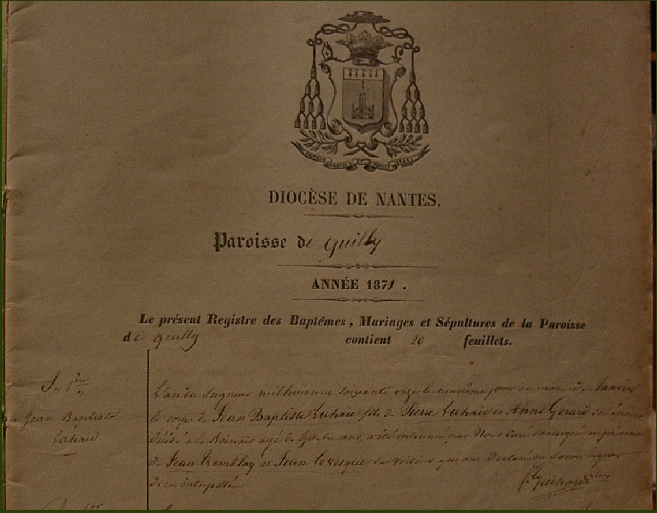 DIOCÈSE DE NANTES.
Paroisse de Guilly
ANNÉE 1871.
Le présent Registre des Baptêmes, Mariages et Sépultures de la Paroisse
de Guilly contient 20 feuillets.
S. 1ère
Jean Baptiste
Lahaie
L'an du Seigneur mil huit cent soixante onze le neuvième jour du mois de Janvier
le corps de Jean Baptiste Lahaie fils de Pierre Lahaie et Anne Gérard son épouse
décédé à la ans, a été inhumé par Nous Curé soussigné en présence
de Jean Tremblay et Jean Levesque ses voisins qui ont déclaré ne savoir signer
de ce interpellés